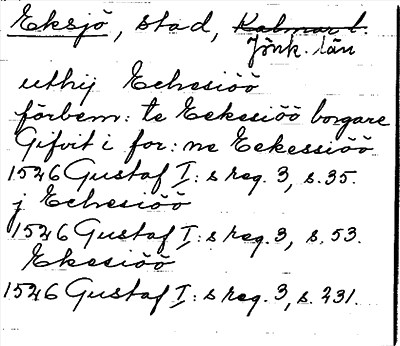 Eksjö, stad, Kalmar l.
Jönk. län
uthij Echesiöö
förbem: te Eekesiöö borgare
Gifvit i for: ne Eekessiöö
1526 Gustaf I: s reg. 3, s. 35.
j Echesiöö
1526 Gustaf I: s reg. 3, s. 53.
Ekesiöö
1526 Gustaf I: s reg. 3, s. 231.